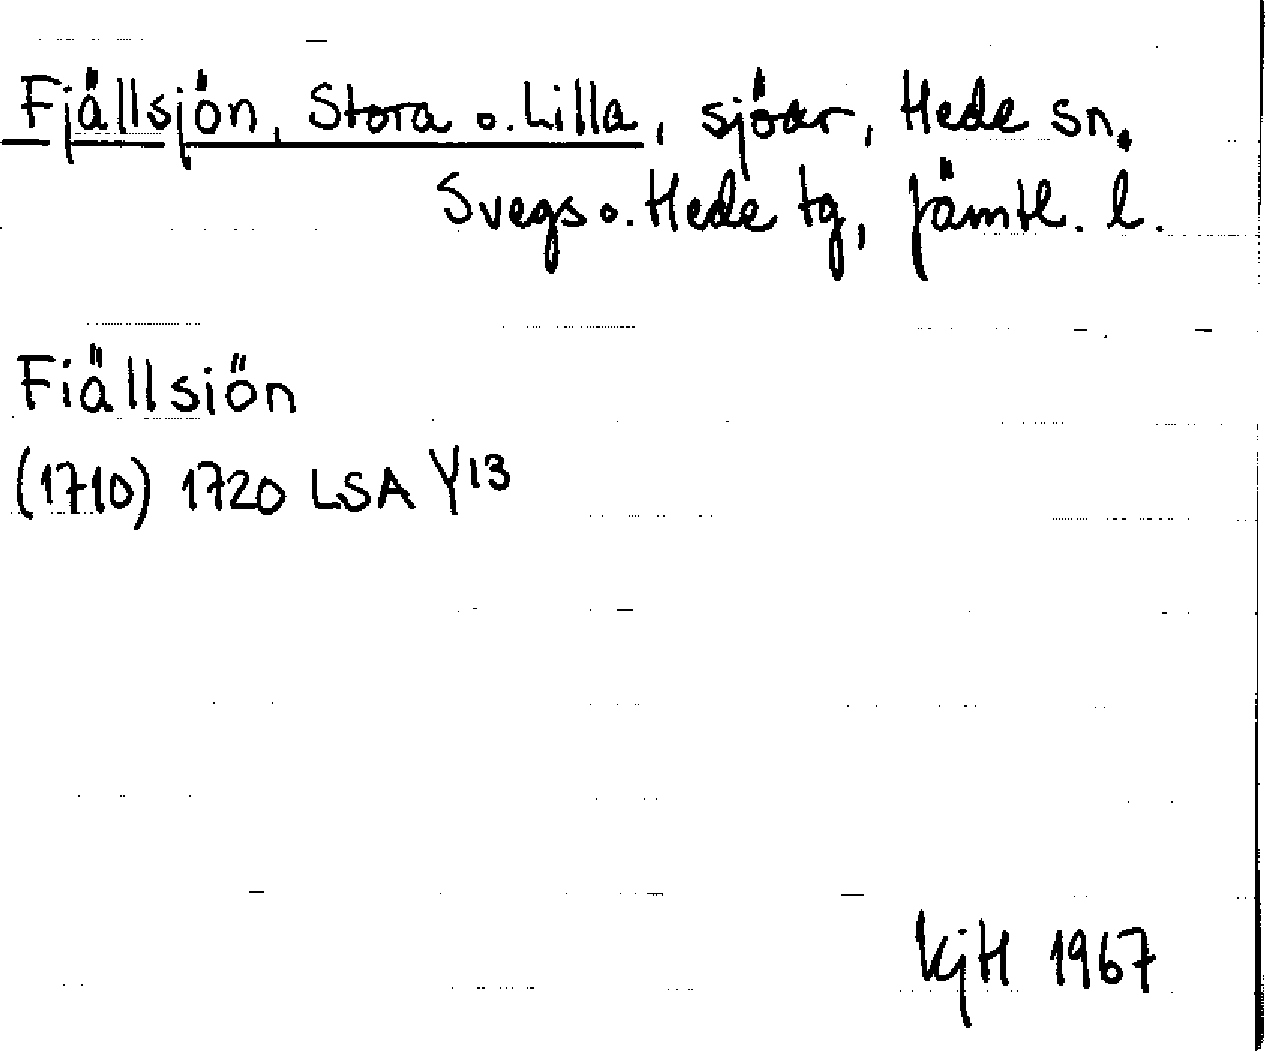 Fjällsjön, Stora o. Lilla, sjöar, Hede sn.
Svegs o. Hede tg, Jämtl. l.
Fiällsiön
(1710) 1720 LSA Y13
KjH 1967